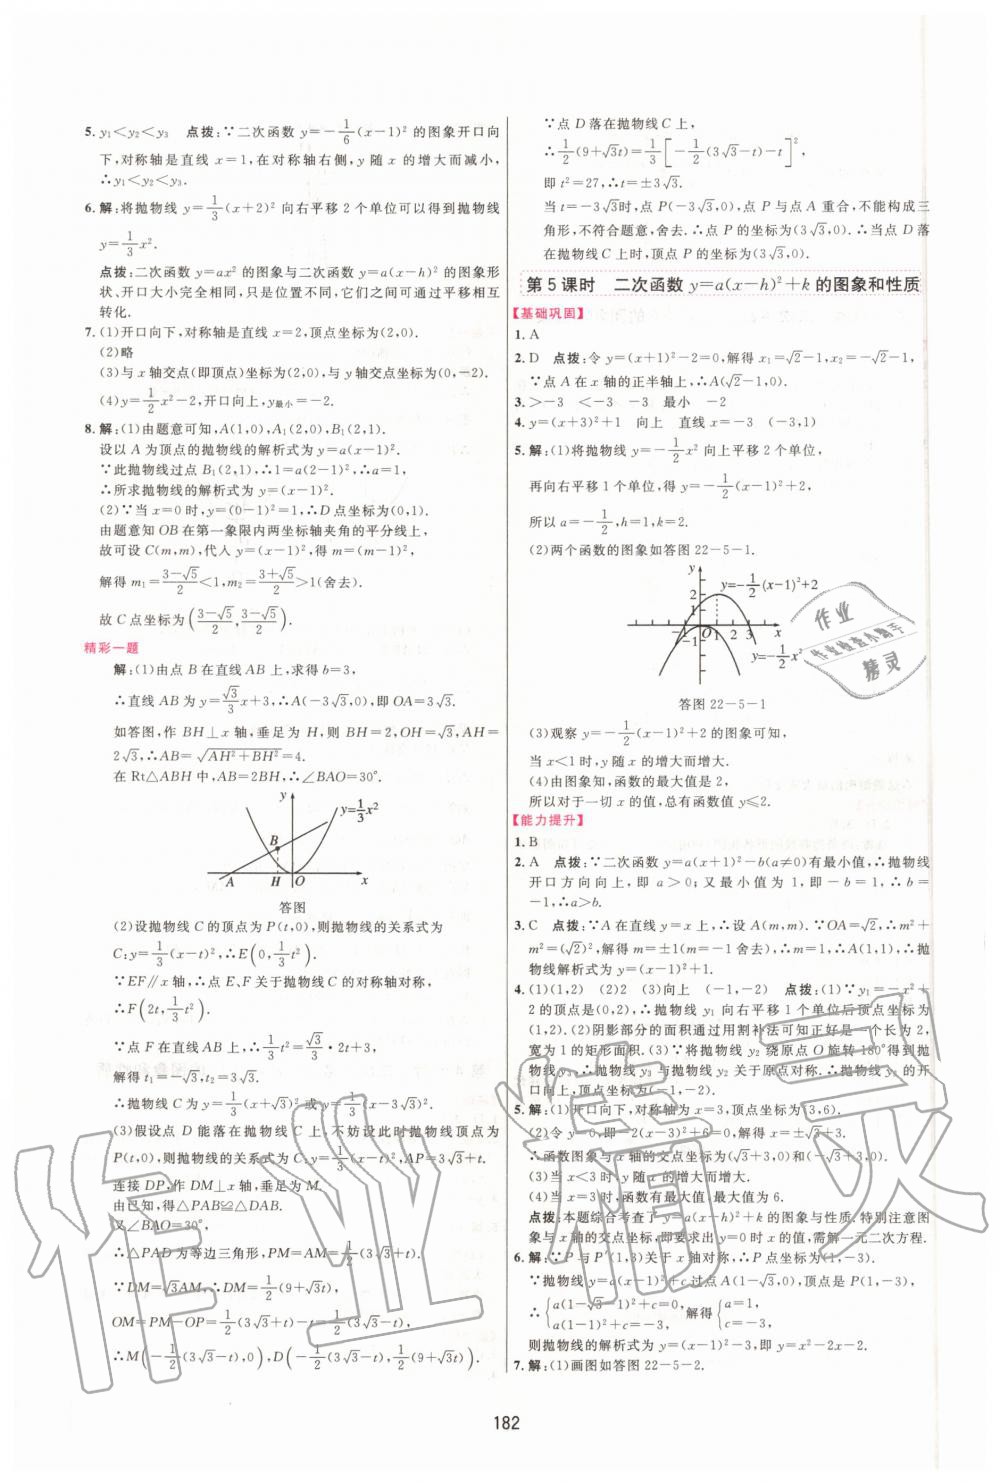 5. y₁<y₂<y₃　点拨:∵二次函数 y=-1/6(x-1)² 的图象开口向
下,对称轴是直线 x=1,在对称轴右侧,y 随 x 的增大而减小,
∴y₁<y₂<y₃.
6. 解:将抛物线 y=1/3(x+2)² 向右平移 2 个单位可以得到抛物线
y=1/3x².
点拨:二次函数 y=ax² 的图象与二次函数 y=a(x-h)² 的图象形
状、开口方向相同,只是位置不同,它们之间可通过平移相互
转化.
7. (1)开口向下,对称轴是直线 x=2,顶点坐标为(2,0).
(2)略
(3)与 x 轴交点(即顶点)坐标为(2,0),与 y 轴交点坐标为(0,-2).
(4)y=1/2x²-2,开口向上,y最小=-2.
8. 解:(1)由题意可知,A(1,0),A₁(2,0),B₁(2,1).
设以 A 为顶点的抛物线的解析式为 y=a(x-1)².
∵此抛物线过点 B₁(2,1),∴1=a(2-1)²,∴a=1,
∴所求抛物线的解析式为 y=(x-1)².
(2)∵当 x=0时,y=(0-1)²=1,∴D点坐标为(0,1).
由题意知 OB 在第一象限内两坐标轴夹角的平分线上,
故可设 C(m,m),代入 y=(x-1)²,得 m=(m-1)²,
解得 m₁=(3-√5)/2<1,m₂=(3+√5)/2>1(舍去).
故 C 点坐标为((3-√5)/2,(3-√5)/2).
精彩一题
解:(1)由点 B 在直线 AB 上,求得 b=3,
∴直线 AB 为 y=√3/3x+3,∴A(-3√3,0),即 OA=3√3.
如答图,作 BH⊥x 轴,垂足为 H,则 BH=2,OH=√3,AH=
2√3,∴AB=√(AH²+BH²)=4.
在 Rt△ABH 中,AB=2BH,∴∠BAO=30°.
y
y=1/3x²
B
A H O x
答图
(2)设抛物线 C 的顶点为 P(t,0),则抛物线的关系式为
C:y=1/3(x-t)²,∴E(0,1/3t²).
∵EF∥x 轴,∴点 E,F 关于抛物线 C 的对称轴对称,
∴F(2t,1/3t²).
∵点 F 在直线 AB 上,∴1/3t²=√3/3·2t+3,
解得 t₁=-√3,t₂=3√3.
∴抛物线 C 为 y=1/3(x+√3)² 或 y=1/3(x-3√3)².
(3)假设点 D 能落在抛物线 C 上,不妨设此时抛物线顶点为
P(t,0),则抛物线的关系式为 C:y=1/3(x-t)²,AP=3√3+t,
连接 DP,作 DM⊥x 轴,垂足为 M.
由已知,得△PAB≌△DAB.
又∠BAO=30°,
∴△PAD 为等边三角形,PM=AM=1/2(3√3+t).
∵DM=√3AM,∴DM=1/2(9+√3t).
OM=PM-OP=1/2(3√3+t)-t=1/2(3√3-t),
∴M(-1/2(3√3-t),0),D(-1/2(3√3-t),1/2(9+√3t)).
∵点 D 落在抛物线 C 上,
∴1/2(9+√3t)=1/3[-1/2(3√3-t)-t]²,
即 t²=27,∴t=±3√3.
当 t=-3√3时,点 P(-3√3,0),点 P 与点 A 重合,不能构成三
角形,不符合题意,舍去.∴点 P 的坐标为(3√3,0).∴当点 D 落
在抛物线 C 上时,顶点 P 的坐标为(3√3,0).
第 5 课时　二次函数 y=a(x-h)²+k 的图象和性质
【基础巩固】
1. A
2. D　点拨:令 y=(x+1)²-2=0,解得 x₁=√2-1,x₂=-√2-1,
∵点 A 在 x 轴的正半轴上,∴A(√2-1,0).
3. >-3　<-3　-3　最小　-2
4. y=(x+3)²+1　向上　直线 x=-3　(-3,1)
5. 解:(1)将抛物线 y=-1/2x² 向上平移 2 个单位,
再向右平移 1 个单位,得到 y=-1/2(x-1)²+2,
所以 a=-1/2,h=1,k=2.
(2)两个函数的图象如答图 22-5-1.
y
y=-1/2(x-1)²+2
2
1
-1 O 1 2 3 x
-1
y=-1/2x²
答图 22-5-1
(3)观察 y=-1/2(x-1)²+2 的图象可知,
当 x<1 时,y 随 x 的增大而增大.
(4)由图象知,函数的最大值是 2,
所以对于一切 x 的值,总有函数值 y≤2.
【能力提升】
1. B
2. A　点拨:∵二次函数 y=a(x+1)²-b(a≠0)有最小值,∴抛物线
开口方向向上,即 a>0;又最小值为 1,即-b=1,∴b=
-1,∴a>b.
3. C　点拨:∵A在直线 y=x 上,∴设 A(m,m).∵OA=√2,∴m²+
m²=(√2)²,解得 m=±1(m=-1 舍去),∴m=1,∴A(1,1),∴抛
物线解析式为 y=(x-1)²+1.
4. (1)(1,2)　(2)2　(3)向上　(-1,-2)　点拨:(1)∵y=-x²+
2的顶点是(0,2),∴抛物线 y₁ 向右平移 1 个单位后顶点坐标为
(1,2).(2)阴影部分的面积通过用割补法可知正好是一个长为 2,
宽为 1 的矩形面积.(3)∵将抛物线 y₂ 绕原点 O 旋转 180°得到抛
物线 y₃,∴抛物线 y₃ 与抛物线 y₂ 关于原点对称.∴抛物线 y₃ 的开
口向上,顶点为(-1,-2).
5. 解:(1)开口向下,对称轴为 x=3,顶点坐标为(3,6).
(2)令 y=0,即-2(x-3)²+6=0,解得 x=±√3+3.
∴函数图象与 x 轴的交点坐标为(√3+3,0)和(-√3+3,0).
(3)当 x<3 时,y 随 x 的增大而增大.
(4)当 x=3 时,函数有最大值,最大值为 6.
点拨:本题综合考查了 y=a(x-h)²+k 的图象与性质,特别注意图
象与 x 轴的交点坐标,即要求出 y=0时 x 的值,需解一元二次方程.
6. 解:∵P 与 P′(1,3)关于 x 轴对称,∴P 点坐标为(1,-3).
∵抛物线 y=a(x-1)²+c过点 A(1-√3,0),顶点是 P(1,-3),
∴{a(1-√3-1)²+c=0, a(1-1)²+c=-3, 解得{a=1, c=-3.
则抛物线的解析式为 y=(x-1)²-3,即 y=x²-2x-2.
7. 解:(1)画图如答图 22-5-2.
182
作业
作业检查小助手
精灵
作业精灵